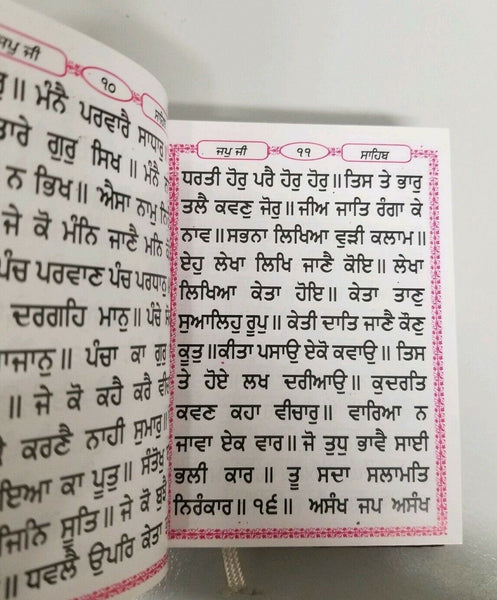 ਜਪੁ ਜੀ ੧੦
॥ ਮੰਨੈ ਪਰਵਾਰੈ ਸਾਧਾਰੁ
ਤਾਰੇ ਗੁਰੁ ਸਿਖ ॥ ਮੰਨੈ
ਨ ਭਿਖ ॥ ਐਸਾ ਨਾਮੁ
ਜੇ ਕੋ ਮੰਨਿ ਜਾਣੈ ਮਨਿ
ਪੰਚ ਪਰਵਾਣ ਪੰਚ ਪਰਧਾਨੁ
ਦਰਗਹਿ ਮਾਨੁ ॥ ਪੰਚੇ
॥ ਪੰਚਾ ਕਾ ਗੁਰੁ
॥ ਜੇ ਕੋ ਕਹੈ ਕਰੈ
ਕਰਣੈ ਨਾਹੀ ਸੁਮਾਰੁ ॥
ਕਾ ਪੂਤੁ ॥ ਸੰਤੋਖੁ
ਜਿਨਿ ਸੂਤਿ ॥ ਜੇ ਕੋ ਬੁਝੈ
॥ ਧਵਲੈ ਉਪਰਿ ਕੇਤਾ
ਜਪੁ ਜੀ ੧੧ ਸਾਹਿਬ
ਧਰਤੀ ਹੋਰੁ ਪਰੈ ਹੋਰੁ ਹੋਰੁ ॥ ਤਿਸ ਤੇ ਭਾਰੁ
ਤਲੈ ਕਵਣੁ ਜੋਰੁ ॥ ਜੀਅ ਜਾਤਿ ਰੰਗਾ ਕੇ
ਨਾਵ ॥ ਸਭਨਾ ਲਿਖਿਆ ਵੁੜੀ ਕਲਾਮ ॥
ਏਹੁ ਲੇਖਾ ਲਿਖਿ ਜਾਣੈ ਕੋਇ ॥ ਲੇਖਾ
ਲਿਖਿਆ ਕੇਤਾ ਹੋਇ ॥ ਕੇਤਾ ਤਾਣੁ
ਸੁਆਲਿਹੁ ਰੂਪੁ ॥ ਕੇਤੀ ਦਾਤਿ ਜਾਣੈ ਕੌਣੁ
ਕੂਤੁ ॥ ਕੀਤਾ ਪਸਾਉ ਏਕੋ ਕਵਾਉ ॥ ਤਿਸ
ਤੇ ਹੋਏ ਲਖ ਦਰੀਆਉ ॥ ਕੁਦਰਤਿ
ਕਵਣ ਕਹਾ ਵੀਚਾਰੁ ॥ ਵਾਰਿਆ ਨ
ਜਾਵਾ ਏਕ ਵਾਰ ॥ ਜੋ ਤੁਧੁ ਭਾਵੈ ਸਾਈ
ਭਲੀ ਕਾਰ ॥ ਤੂ ਸਦਾ ਸਲਾਮਤਿ
ਨਿਰੰਕਾਰ ॥ ੧੬ ॥ ਅਸੰਖ ਜਪ ਅਸੰਖ